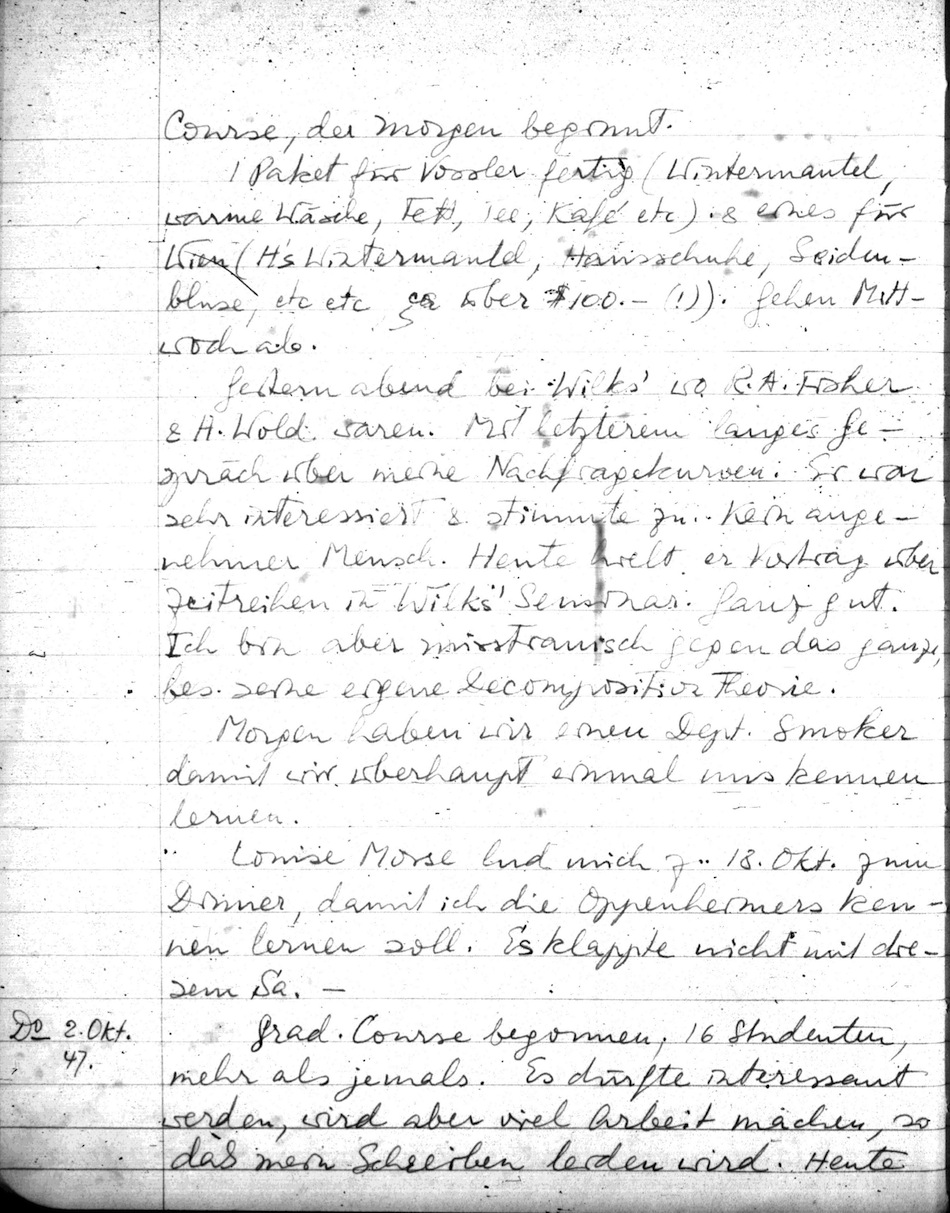 Course, der morgen beginnt.
1 Paket für Vossler fertig (Wintermantel,
warme Wäsche, Fett, Tee, Kafé etc) & eines für
Wien (H's Wintermantel, Hausschuhe, Seiden-
bluse, etc etc ca über $100.– (!)). Gehen Mitt-
woch ab.
Gestern abend bei Wilks' wo R.A. Fisher
& H. Wold waren. Mit letzterem langes Ge-
spräch über meine Nachfragekurven. Er war
sehr interessiert & stimmte zu. Kein ange-
nehmer Mensch. Heute hielt er Vortrag über
Zeitreihen in Wilks' Seminar. Ganz gut.
Ich bin aber misstrauisch gegen das ganze,
bes. seine eigene Decomposition Theorie.
Morgen haben wir einen Dept. Smoker
damit wir überhaupt einmal uns kennen
lernen.
Louise Morse lud mich z. 18. Okt. zum
Dinner, damit ich die Oppenheimers ken-
nen lernen soll. Es klappte nicht mit die-
sem Sa. –
Do 2. Okt. Grad. Course begonnen, 16 Studenten,
47. mehr als jemals. Es dürfte interessant
werden, wird aber viel Arbeit machen, so
daß mein Schreiben leiden wird. Heute